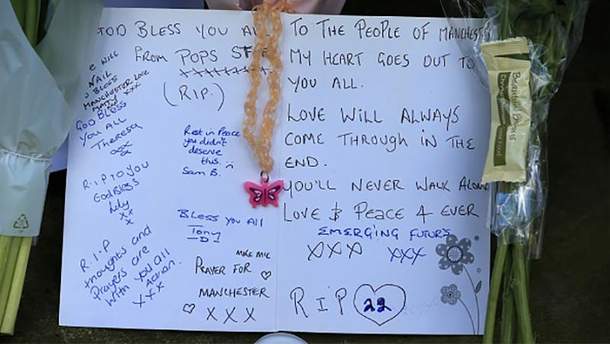 GOD BLESS YOU A
FROM POPS
(R.I.P.)
BLESS
MANCHESTER LOVE
XXX
GOD BLESS
YOU ALL
Theresa
R.I.P TO YOU
God Bless
Lily
XX
X
R.I.P
thoughts and
Prayers are
with you all
XXX
Rest in Peace
you didn't
deserve
this.
Sam B.
BLESS YOU ALL
Tony
PRAYER FOR
MANCHESTER
XXX
TO THE PEOPLE OF MANCHES
MY HEART GOES OUT TO
YOU ALL.
LOVE WILL ALWAYS
COME THROUGH IN THE
END.
YOU'LL NEVER WALK ALON
LOVE & PEACE 4 EVER
EMERGING FUTURES
XXX XXX
R I P 22